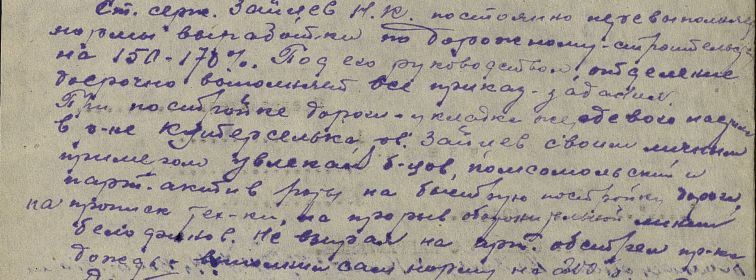 Ст. серж. Зайцев Н.К. постоянно перевыполнял
нормы выработки по дорожному строительству
на 150-170%. Под его руководством, отделение
досрочно выполняет все приказ-задания.
При постройке дороги-укладки жердевого настила
в р-не Куперселька, тов. Зайцев своим личным
примером увлекал б-цов, комсомольский и
парт. актив роты на быструю постройку дороги,
на пропуск тех-ки, на прорыв оборонительной линии
белофинов. Не взирая на арт. обстрел пр-ка
дождь выполнил сам норму на 200